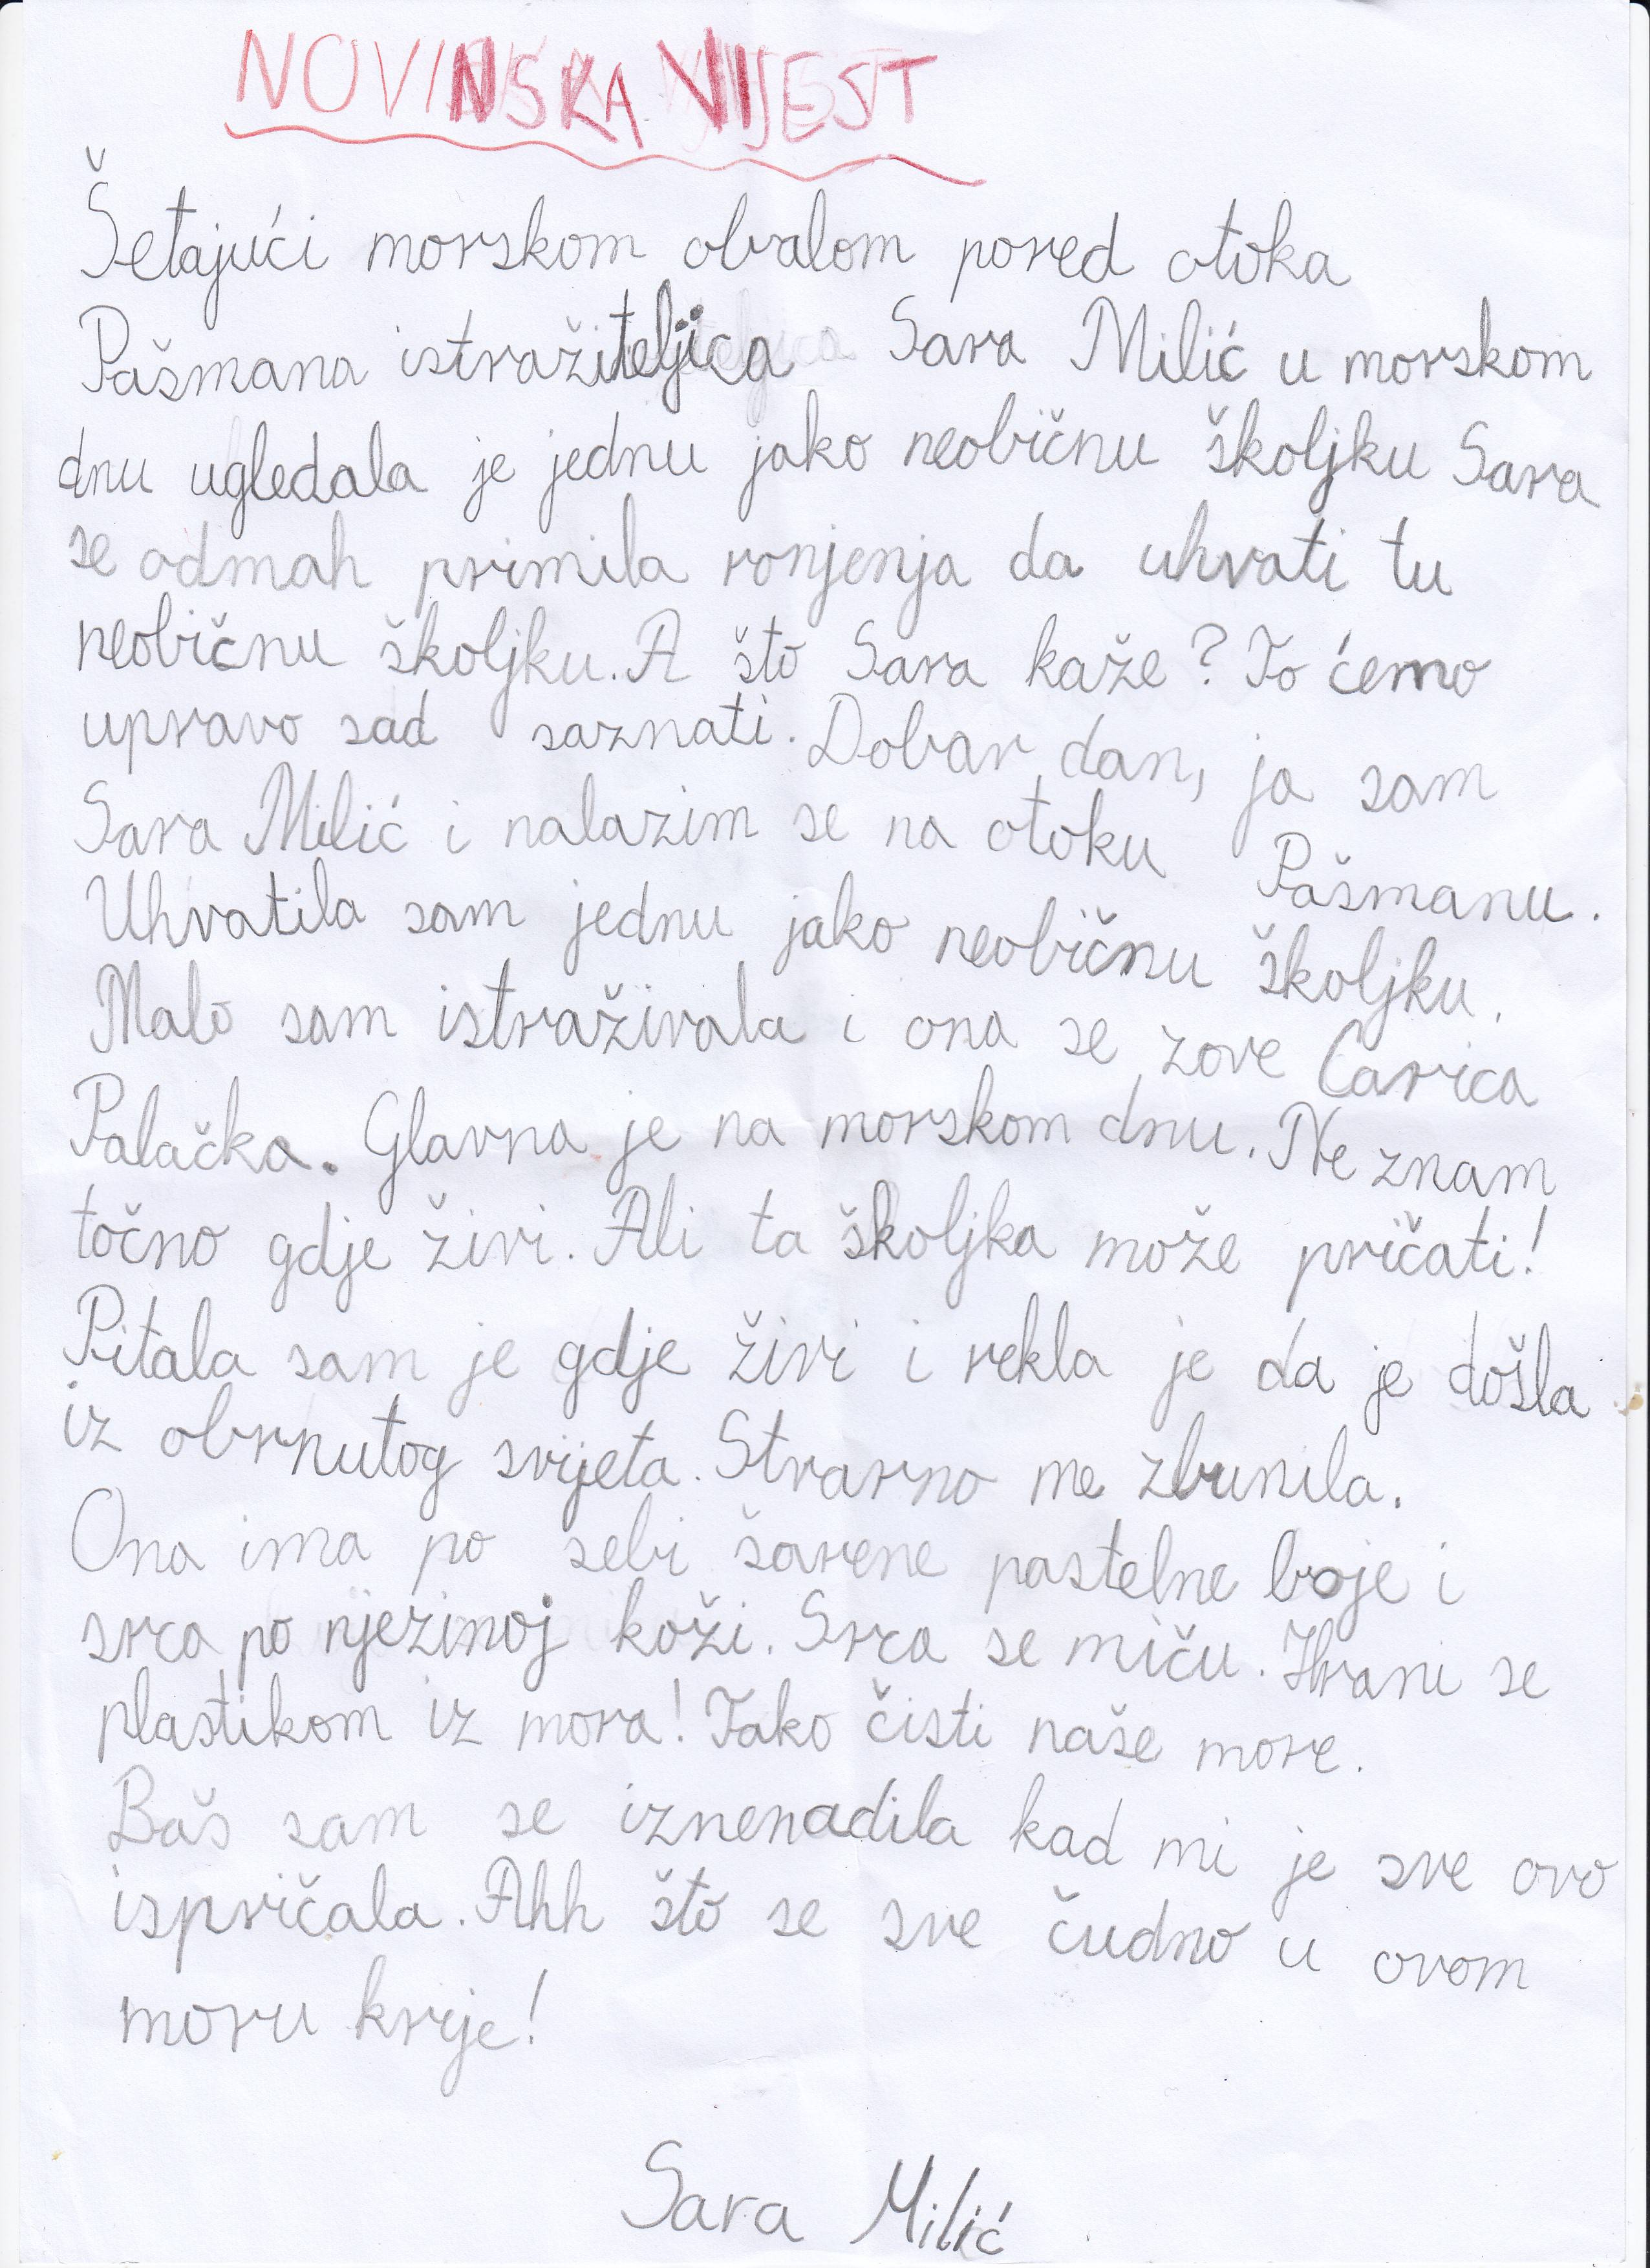 NOVINSKA VIJEST
Šetajući morskom obalom pored otoka
Pašmana istražiteljica Sara Milić u morskom
dnu ugledala je jednu jako neobičnu školjku Sara
se odmah primila ronjenja da uhvati tu
neobičnu školjku. A što Sara kaže? To ćemo
upravo sad saznati. Dobar dan, ja sam
Sara Milić i nalazim se na otoku Pašmanu.
Uhvatila sam jednu jako neobičnu školjku.
Malo sam istraživala i ona se zove Carica
Palačka. Glavna je na morskom dnu. Ne znam
točno gdje živi. Ali ta školjka može pričati!
Pitala sam je gdje živi i rekla je da je došla
iz obrnutog svijeta. Stvarno me zbunila.
Ona ima po sebi šarene pastelne boje i
srca po njezinoj koži. Srca se miču. Hrani se
plastikom iz mora! Tako čisti naše more.
Baš sam se iznenadila kad mi je sve ovo
ispričala. Ahh što se sve čudno u ovom
moru krije!
Sara Milić